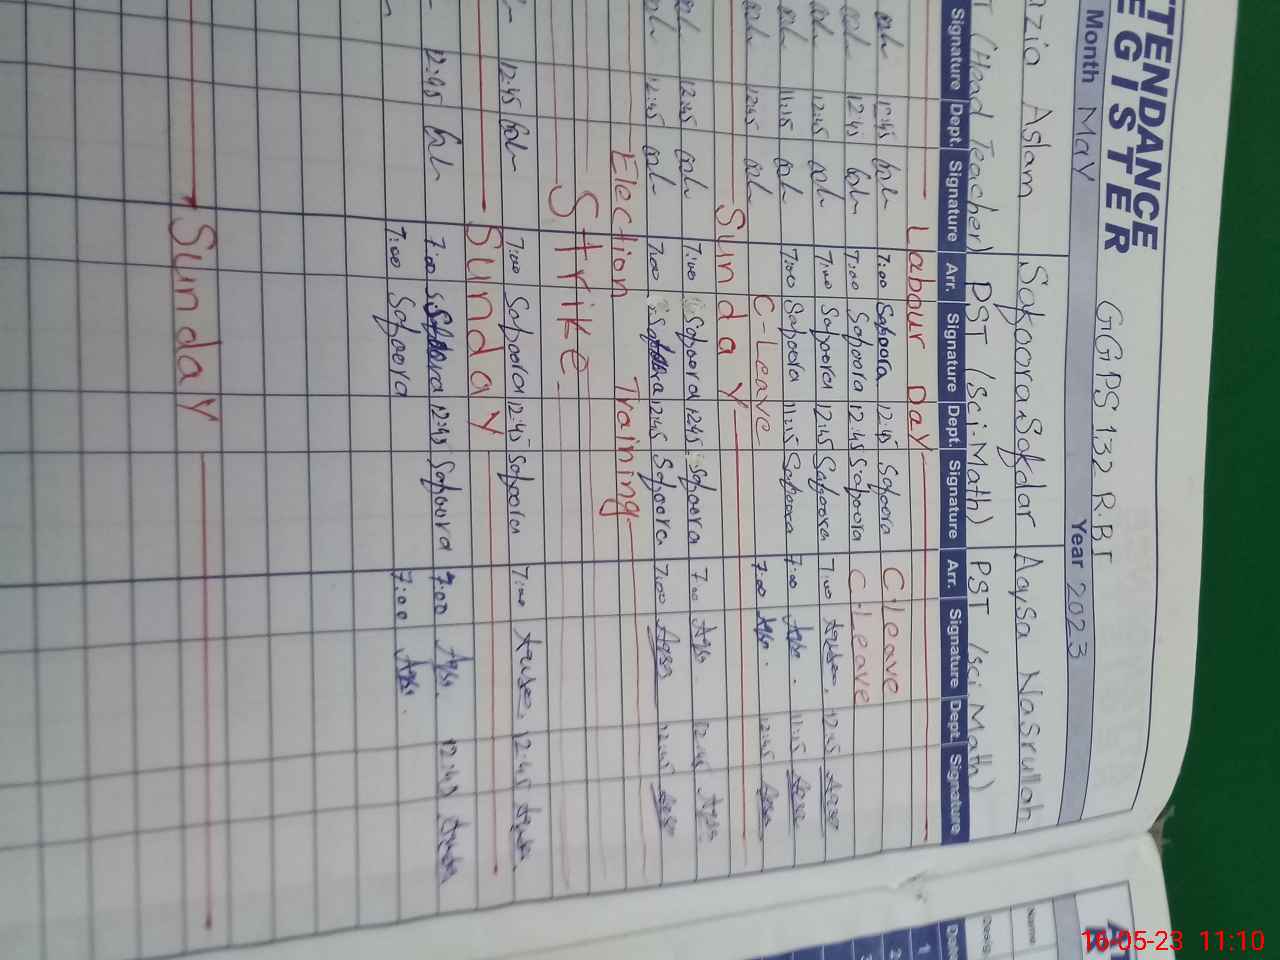 TTENDANCE
EGISTER
GGPS 132 R.B I
Month MaY Year 2023
azia Aslam Safoora Safdar Aqsa Nasrullah
T (Head Teacher) PST (Sci.Math) PST (Sci Math)
Signature Dept. Signature Arr. Signature Dept. Signature Arr. Signature Dept. Signature
Labour DaY
12:45 7:00 Safoora 12:45 Safoora C.Leave
12:45 7:00 Safoora 12:45 Safoora C.Leave
12:45 7:00 Safoora 12:45 Safoora 7:00 12:45
11:15 7:00 Safoora 11:15 Safoora 7:00 Aqsa 11:15
12:45 C-Leave 7:00 Aqsa 12:45
Sunday
12:45 7:00 Safoora 12:45 Safoora 7:00 Aqsa 12:45 Aqsa
12:45 7:00 Safoora 12:45 Safoora 7:00 Aqsa 12:45 Aqsa
Election Training
Strike
12:45 7:00 Safoora 12:45 Safoora 7:00 12:45
Sunday
12:45 7:00 Safoora 12:45 Safoora 7:00 Aqsa 12:45
7:00 Safoora 7:00 Aqsa
Sunday
Name
Desig
Date
1
2
3
16-05-23 11:10